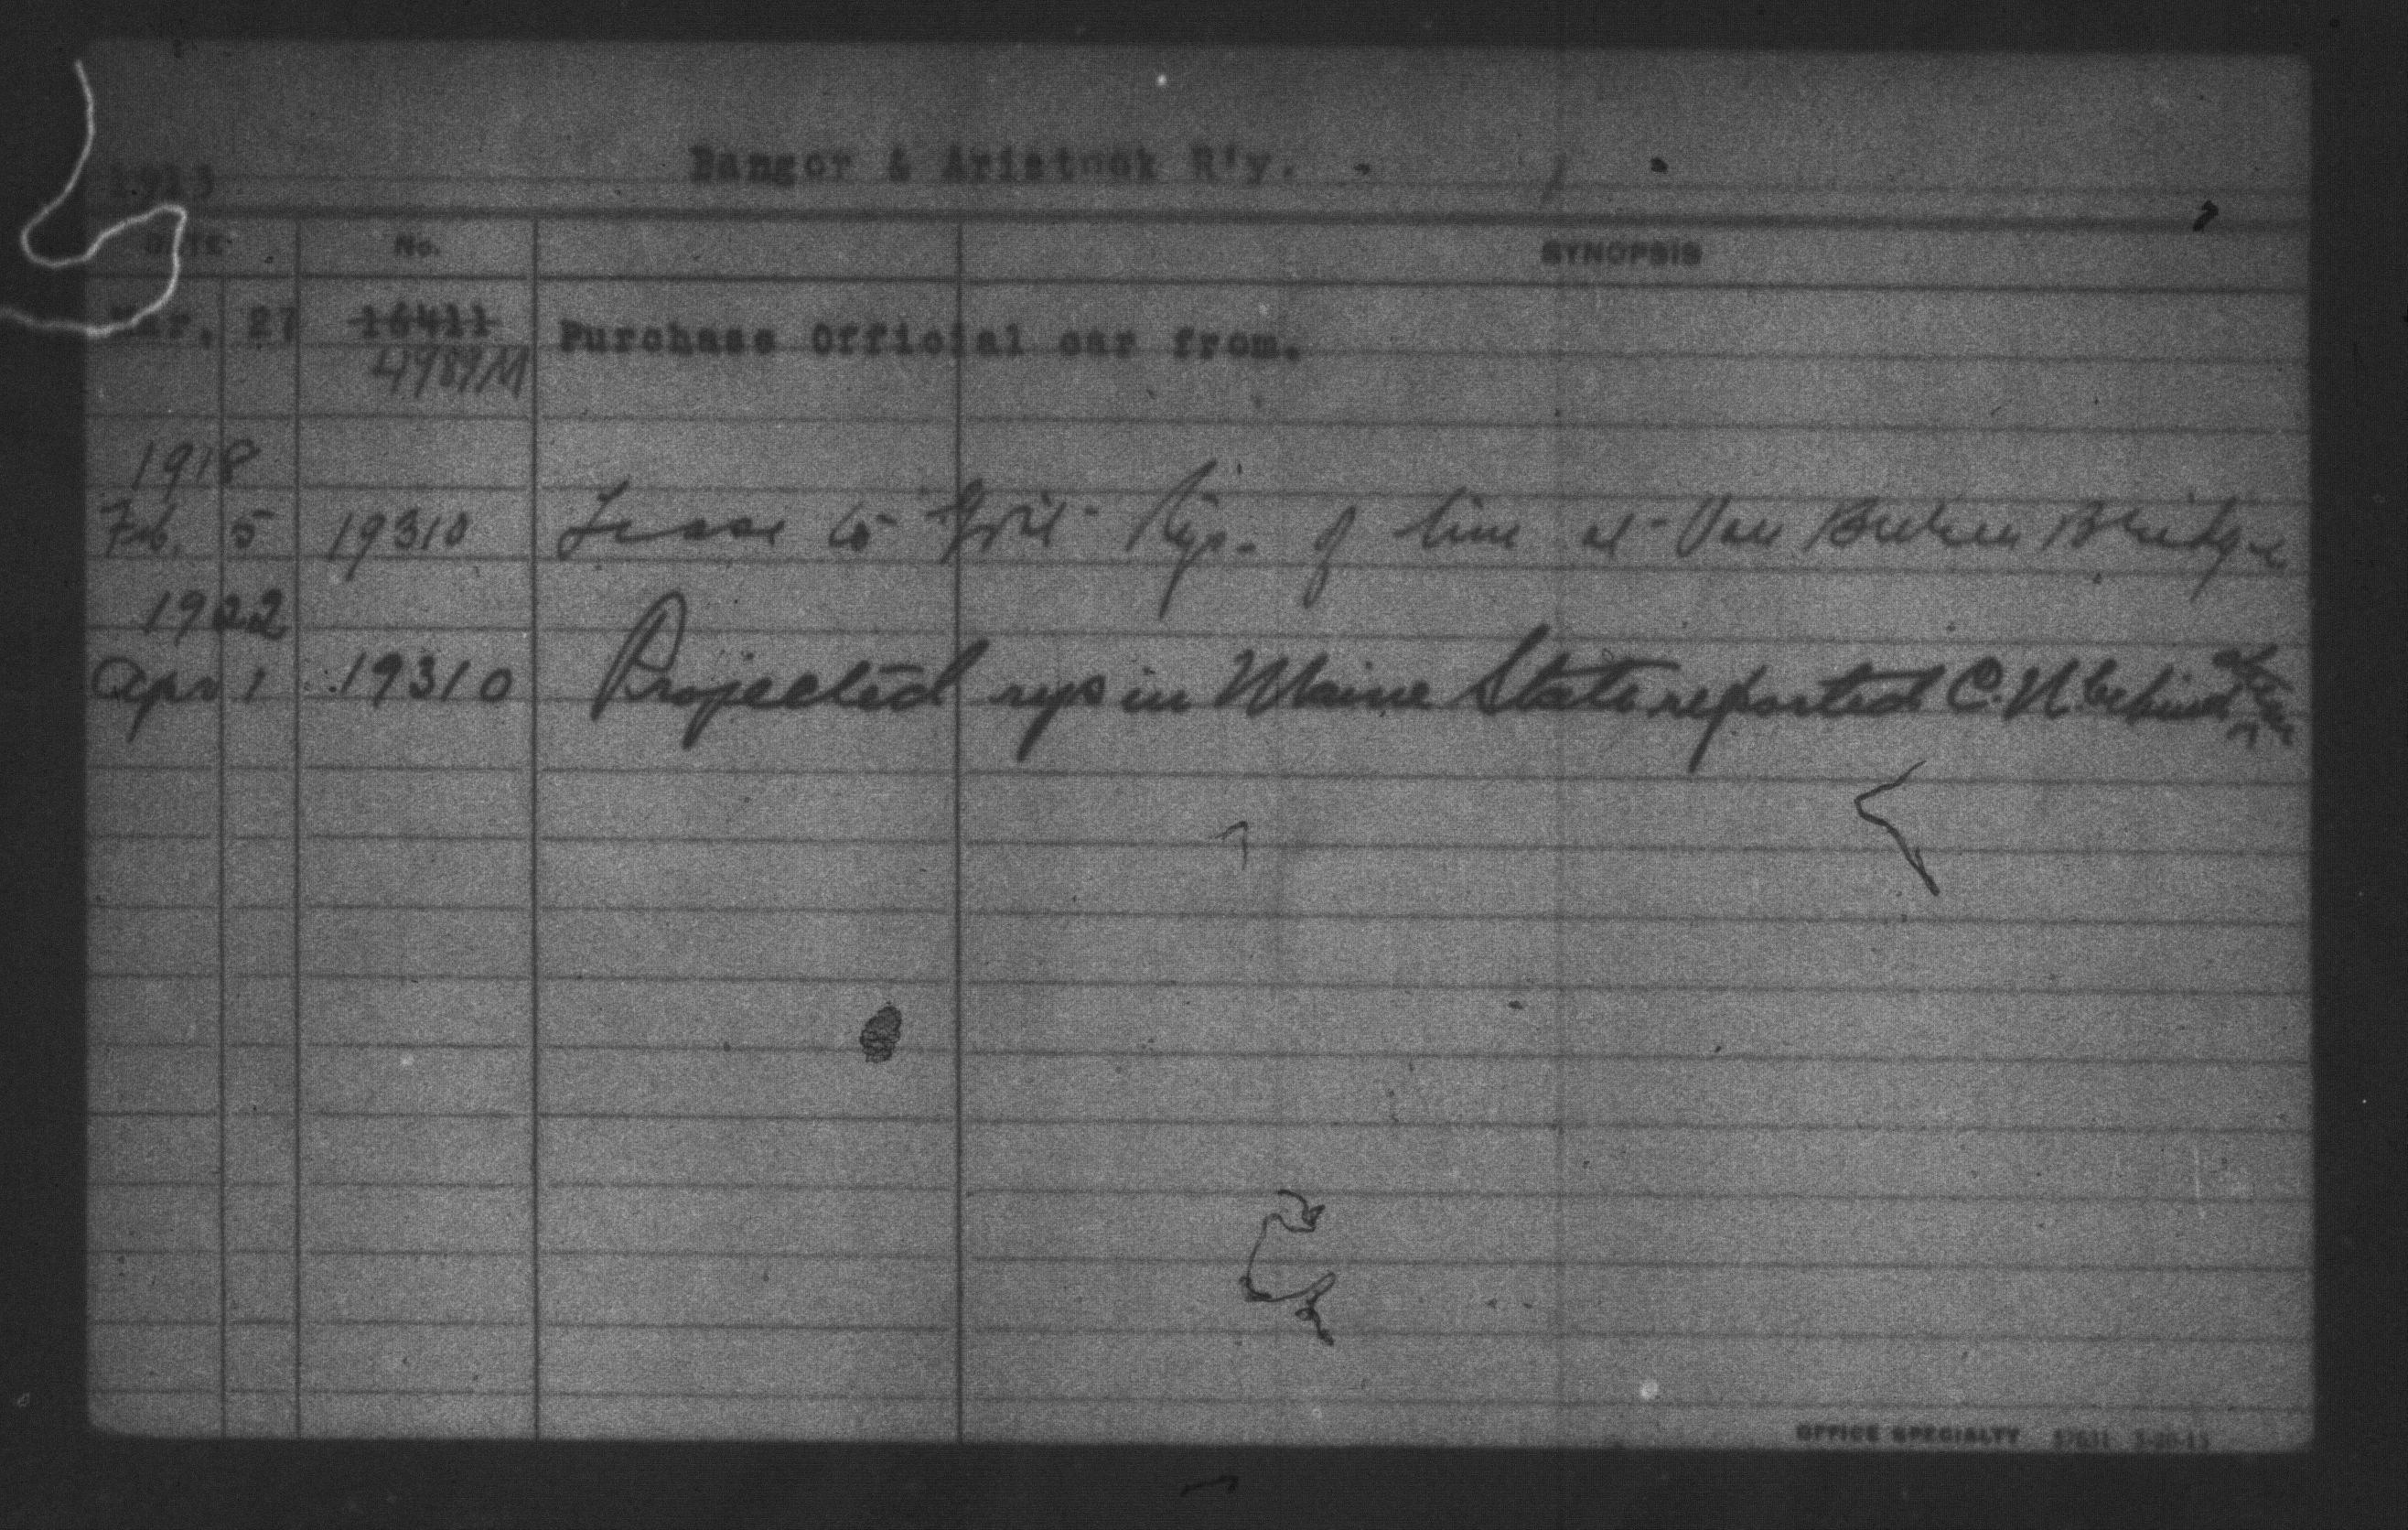 Bangor & Aristook R'y. -
1913
DATE No. SYNOPSIS
Mar. 27 16411 Purchase Official car from.
4989M
1918
Feb. 5 19310 Lease to Gov't Rys. of line at Van Buren Bridge
1922
Apr 1 19310 Projected rys in Maine State reported C.N. behind
OFFICE SPECIALTY 3-20-13